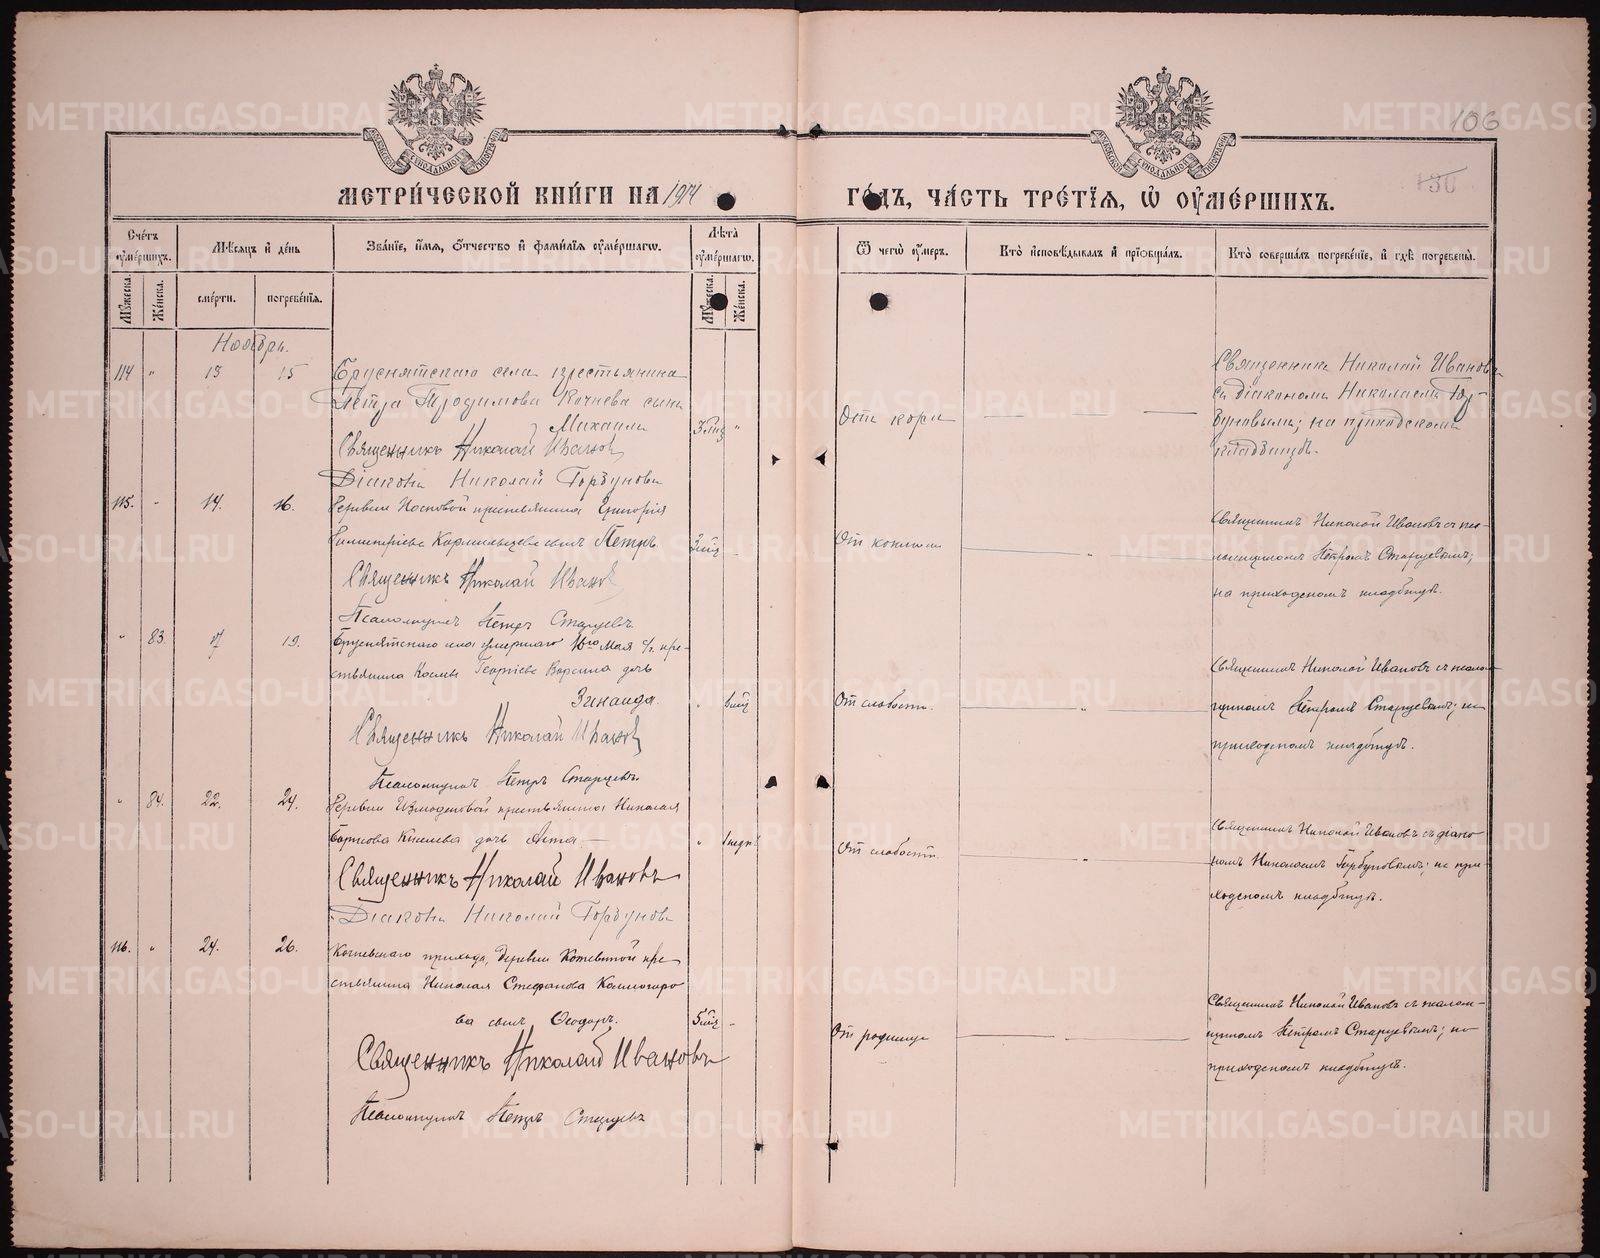 106
130
МЕТРИ́ЧЕСКОЙ КНИ́ГИ НА 1914
ГО́ДЪ, ЧА́СТЬ ТРЕ́ТІѦ, Ѡ ОУ҆МЕ́РШИХЪ.
Сче́тъ оу҆ме́ршихъ.
Мꙋ́жеска.
Же́нска.
Мѣ́сѧцъ и҆ де́нь
сме́рти.
погребе́нїѧ.
Зва́нїе, и҆́мѧ, ѻ҆́тчество и҆ фами́лїѧ оу҆ме́ршагѡ.
Лѣ́та оу҆ме́ршагѡ.
Мꙋ́жеска.
Же́нска.
Ѿ чегѡ̀ оу҆́меръ.
Кто̀ и҆сповѣ́дывалъ и҆ прїѡбща́лъ.
Кто̀ соверша́лъ погребе́нїе, и҆ гдѣ̀ погребе́ны.
Ноябрь.
114 " 13 15 Бруснятскаго села крестьянина
Петра Трофимова Кочнева сынъ
Михаилъ 3 мц "
Священникъ Николай Ивановъ
Діаконъ Николай Горбуновъ
Отъ кори
Священникъ Николай Ивановъ
съ діакономъ Николаемъ Гор-
буновымъ; на приходскомъ
кладбищѣ.
115. - 14. 16. Деревни крестьянина Григорія
сынъ Петръ. -
Священникъ Николай Ивановъ
Псаломщикъ Петръ Старцевъ.
Отъ
Священникъ Николай Ивановъ съ пса-
ломщикомъ Петромъ Старцевымъ;
на приходскомъ кладбищѣ.
" 83. 17 19. Бруснятскаго села умершаго 16го мая с/г. кре-
стьянина Космы Георгіева дочь
Зинаида. " 6 мц
Священникъ Николай Ивановъ
Псаломщикъ Петръ Старцевъ.
Отъ слабости.
Священникъ Николай Ивановъ съ псалом-
щикомъ Петромъ Старцевымъ; на
приходскомъ кладбищѣ.
" 84. 22. 24. Деревни Измоденовой крестьянина Николая
Борисова Киселева дочь Анна. " 1 нед.
Священникъ Николай Ивановъ
Діаконъ Николай Горбуновъ
Отъ слабости.
Священникъ Николай Ивановъ съ діако-
номъ Николаемъ Горбуновымъ; на при-
ходскомъ кладбищѣ.
116. " 24. 26. прихода, деревни кре-
стьянина Николая Стефанова Колмогоро-
ва сынъ Ѳеодоръ. 5 мц -
Священникъ Николай Ивановъ
Псаломщикъ Петръ Старцевъ
Отъ родимца
Священникъ Николай Ивановъ съ псалом-
щикомъ Петромъ Старцевымъ; на
приходскомъ кладбищѣ.
METRIKI.GASO-URAL.RU